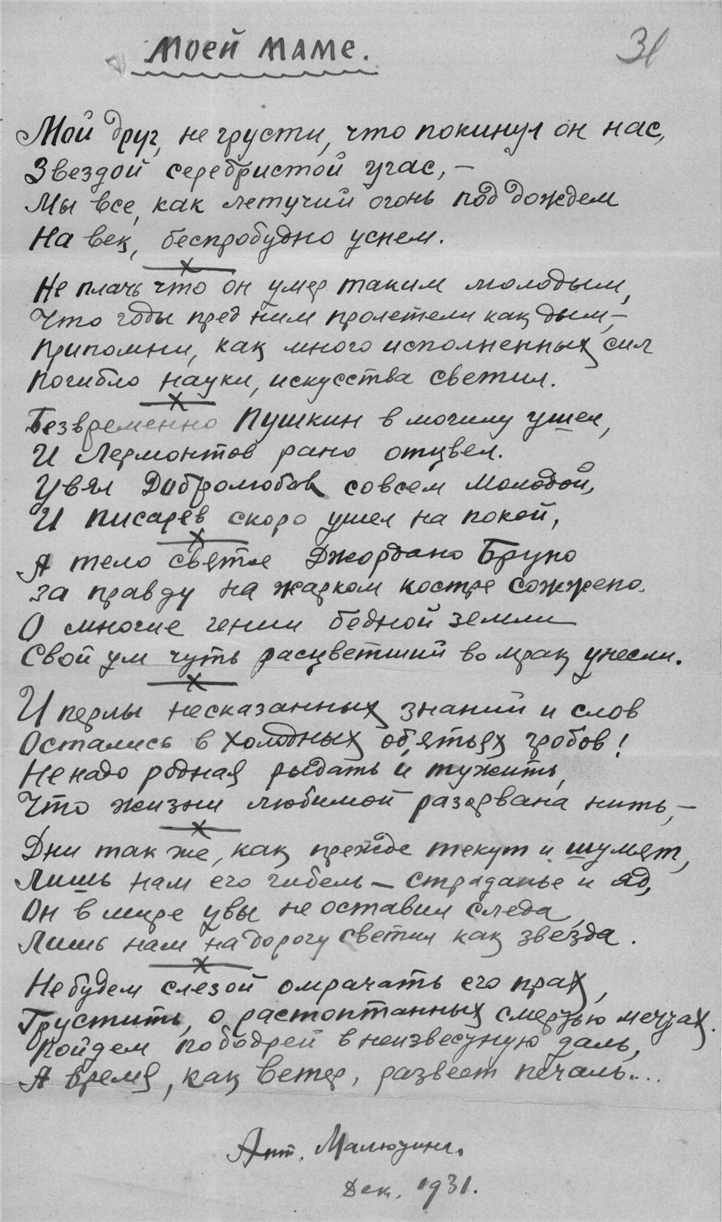 Моей маме.
31
Мой друг, не грусти, что покинул он нас,
Звездой серебристой угас,—
Мы все, как летучий огонь под дождем
На век, беспробудно уснем.
Не плачь что он умер таким молодым,
Что годы пред ним пролетели как дым,—
Припомни, как много исполненных сил
Погибло науки, искусства светил.
Безвременно Пушкин в могилу ушел,
И Лермонтов рано отцвел.
Увял Добролюбов совсем молодой,
И Писарев скоро ушел на покой,
А тело святое Джордано Бруно
За правду на жарком костре сожжено.
О многие гении бедной земли
Свой ум чуть расцветший во мрак унесли.
И перлы несказанных знаний и слов
Остались в холодных объятьях гробов!
Не надо родная рыдать и тужить,
Что жизни любимой разорвана нить,—
Дни так же, как прежде текут и шумят,
Лишь нам его гибель — страданье и яд,
Он в мире увы не оставил следа,
Лишь нам на дорогу светил как звезда.
Не будем слезой омрачать его прах,
Грустить, о растоптанных смертью мечтах.
Пойдем по бодрей в неизвестную даль,
А время, как ветер, развеет печаль...
Ант.
Дек. 1931.